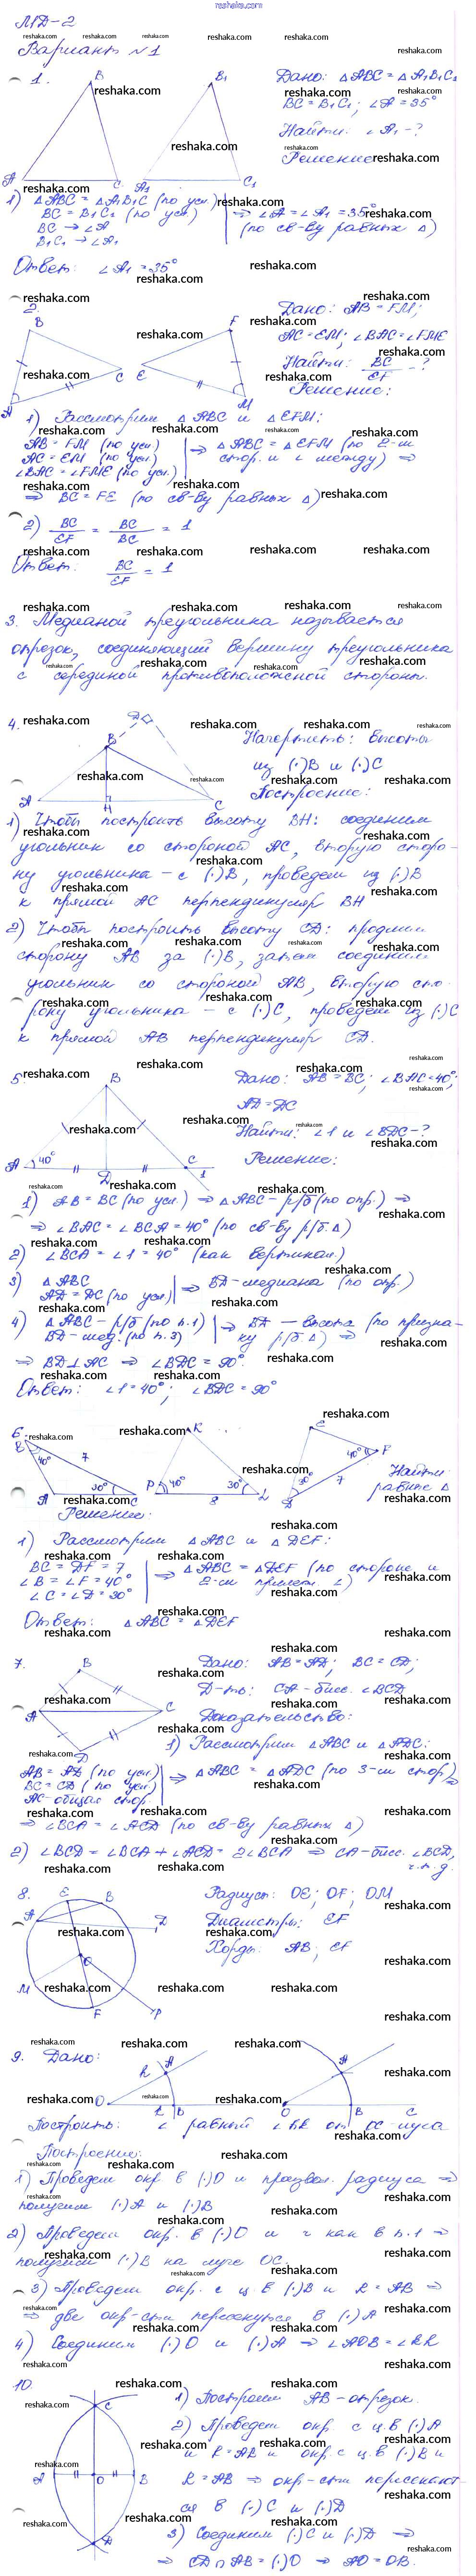 reshaka.com
МД-2
Вариант №1
1.
Дано: △ABC = △A1B1C1
BC = B1C1; ∠A = 35°
Найти: ∠A1 - ?
Решение:
1) △ABC = △A1B1C (по усл.)
BC = B1C1 (по усл)
BC → ∠A
B1C1 → ∠A1
⇒ ∠A = ∠A1 = 35°
(по св-ву равных △)
Ответ: ∠A1 = 35°
2.
Дано: AB = FM;
AC = EM; ∠BAC = ∠FME
Найти: BC/EF - ?
Решение:
1) Рассмотрим △ABC и △EFM:
AB = FM (по усл.)
AC = EM (по усл.)
∠BAC = ∠FME (по усл.)
⇒ △ABC = △EFM (по 2-м
стор. и ∠ между) ⇒
⇒ BC = FE (по св-ву равных △)
2) BC/EF = BC/BC = 1
Ответ: BC/EF = 1
3. Медианой треугольника называется
отрезок, соединяющий вершину треугольника
с серединой противоположной стороны.
4.
Начертить: высоты
из (·)B и (·)C
Построение:
1) Чтобы построить высоту BH: соединим
угольник со стороной AC, вторую сторо-
ну угольника - с (·)B, проведем из (·)B
к прямой AC перпендикуляр BH
2) Чтобы построить высоту CD: продлим
сторону AB за (·)B, затем соединим
угольник со стороной AB, вторую сто-
рону угольника - с (·)C, проведем из (·)C
к прямой AB перпендикуляр CD.
5.
Дано: AB = BC; ∠BAC = 40°;
AD = DC
Найти: ∠1 и ∠BDC - ?
Решение:
1) AB = BC (по усл.) ⇒ △ABC - р/б (по опр.) ⇒
⇒ ∠BAC = ∠BCA = 40° (по св-ву р/б △)
2) ∠BCA = ∠1 = 40° (как вертикал.)
3) △ABC
AD = DC (по усл)
⇒ BD - медиана (по опр.)
4) △ABC - р/б (по п.1)
BD - мед. (по п.3)
⇒ BD - высота (по призна-
ку р/б △) ⇒
⇒ BD ⊥ AC ⇒ ∠BDC = 90°.
Ответ: ∠1 = 40°; ∠BDC = 90°
6.
Найти:
равные △
Решение:
1) Рассмотрим △ABC и △DEF:
BC = DF = 7
∠B = ∠F = 40°
∠C = ∠D = 30°
⇒ △ABC = △DEF (по стороне и
2-м прилеж. ∠)
Ответ: △ABC = △DEF
7.
Дано: AB = AD; BC = CD;
Д-ть: CA - бисс. ∠BCD
Доказательство:
1) Рассмотрим △ABC и △ADC:
AB = AD (по усл)
BC = CD (по усл)
AC - общая стор.
⇒ △ABC = △ADC (по 3-м стор) ⇒
⇒ ∠BCA = ∠ACD (по св-ву равных △)
2) ∠BCD = ∠BCA + ∠ACD = 2∠BCA ⇒ CA - бисс. ∠BCD,
ч.т.д.
8.
Радиусы: OE; OF; OM
Диаметры: EF
Хорды: AB; EF
9. Дано:
Построить: ∠ равный ∠hk от OC луча
Построение:
1) Проведем окр. в (·)O и произвол. радиуса ⇒
получим (·)A и (·)B
2) Проведем окр. в (·)O и r как в п.1 ⇒
получим (·)B на луче OC.
3) Проведем окр. с ц. в (·)B и R = AB ⇒
⇒ две окр-сти пересекутся в (·)A
4) Соединим (·)O и (·)A ⇒ ∠AOB = ∠hk
10.
1) Построим AB - отрезок.
2) Проведем окр. с ц. в (·)A
и R = AB и окр. с ц. в (·)B и
R = AB ⇒ окр-сти пересекают-
ся в (·)C и (·)D
3) Соединим (·)C и (·)D ⇒
⇒ CD ∩ AB = (·)O ⇒ AO = OB.